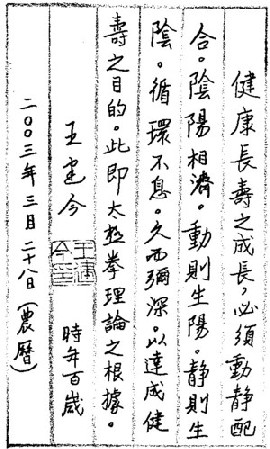 健康長壽之成長，必須動静配
合。陰陽相濟。動則生陽。静則生
陰。循環不息。久而彌深。以達成健
壽之目的。此即太極拳理論之根據。
王建今 時年百歲
二〇〇三年三月二十八日（農曆）